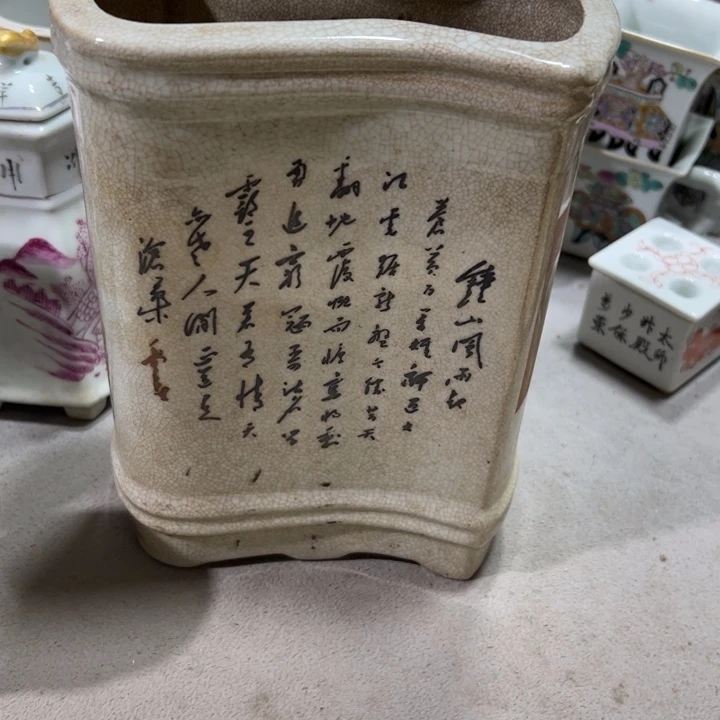 鍾山風雨起
蒼黃百萬雄師過大
江虎踞龍盤今勝昔天
翻地覆慨而慷宜將剩
勇追窮寇不可沽名學
霸王天若有情天
亦老人間正道是
滄桑